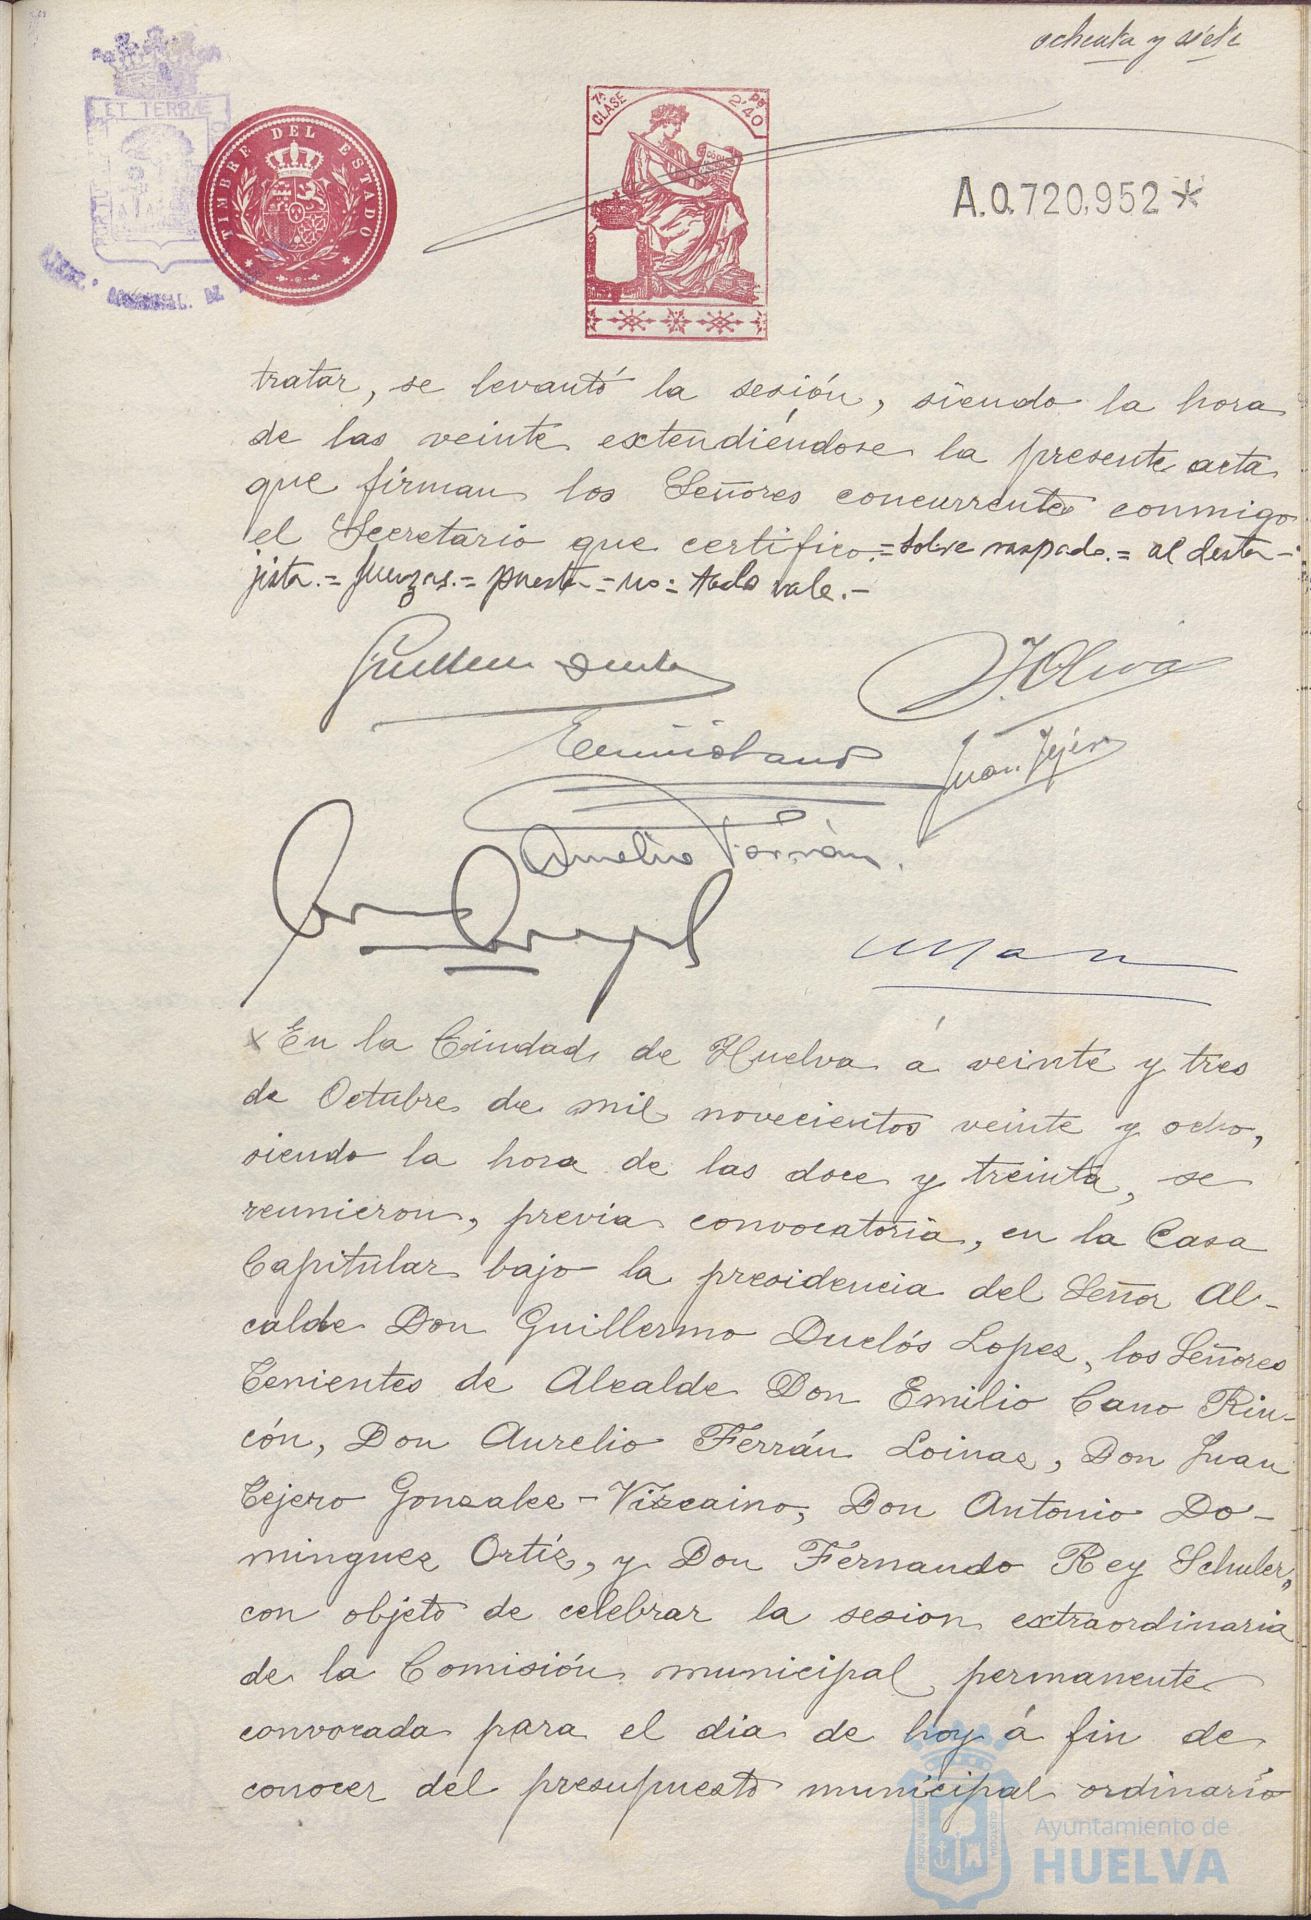 ochenta y siete
ET TERRÆ
TIMBRE DEL ESTADO
7ª CLASE
Pts 2'40
A.0.720,952*
tratar, se levantó la sesión, siendo la hora
de las veinte extendiéndose la presente acta
que firman los Señores concurrentes conmigo
el Secretario que certifico.=sobre raspado.= al desta-
jista.= fuerzas.= puesta = no = todo vale.-
J. Oliva
Emilio Cano
Juan Tejero
Aurelio Ferrán.
x En la Ciudad de Huelva á veinte y tres
de Octubre de mil novecientos veinte y ocho,
siendo la hora de las doce y treinta, se
reunieron, previa convocatoria, en la Casa
Capitular bajo la presidencia del Señor Al-
calde Don Guillermo Duclós Lopez, los Señores
Tenientes de Alcalde Don Emilio Cano Rin-
cón, Don Aurelio Ferrán Loinaz, Don Juan
Tejero Gonzalez-Vizcaino, Don Antonio Do-
minguez Ortíz, y Don Fernando Rey Schuler,
con objeto de celebrar la sesion extraordinaria
de la Comisión municipal permanente
convocada para el dia de hoy á fin de
conocer del presupuesto municipal ordinario
Ayuntamiento de
HUELVA